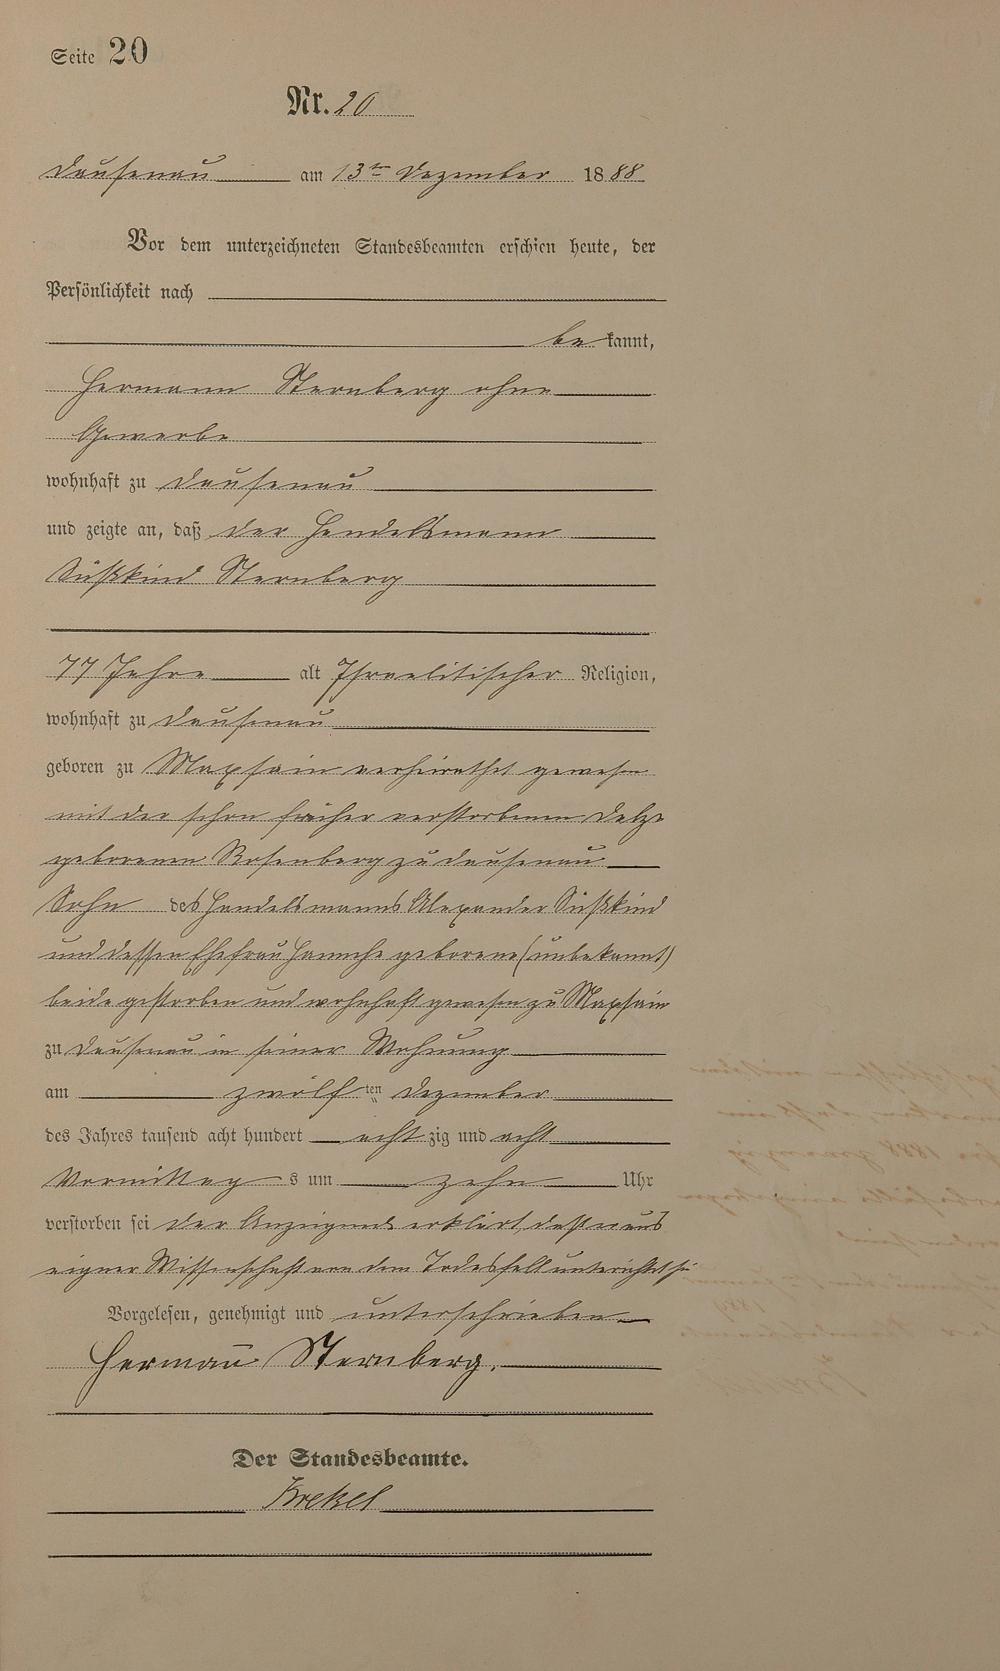 Seite 20
Nr. 20
Dausenau am 13ten Dezember 1888
Vor dem unterzeichneten Standesbeamten erschien heute, der
Persönlichkeit nach
be kannt,
Hermann Sternberg ohne
Gewerbe
wohnhaft zu Dausenau
und zeigte an, daß der Handelsmann
Süßkind Sternberg
77 Jahre alt Israelitischer Religion,
wohnhaft zu Dausenau
geboren zu Maxsain verheirathet gewesen
mit der schon früher verstorbenen
geborenen Rosenberg zu Dausenau
Sohn des Handelsmanns Alexander Süßkind
und dessen Ehefrau Hannche geborene (unbekannt)
beide gestorben und wohnhaft gewesen zu Maxsain
zu Dausenau in seiner Wohnung
am zwölf ten Dezember
des Jahres tausend acht hundert acht zig und acht
Vormittag s um zehn Uhr
verstorben sei der Anzeigende erklärt, daß er aus
eigner Wissenschaft von dem Todesfall unterichtet sei
Vorgelesen, genehmigt und unterschrieben
Hermann Sternberg.
Der Standesbeamte.
Krekel